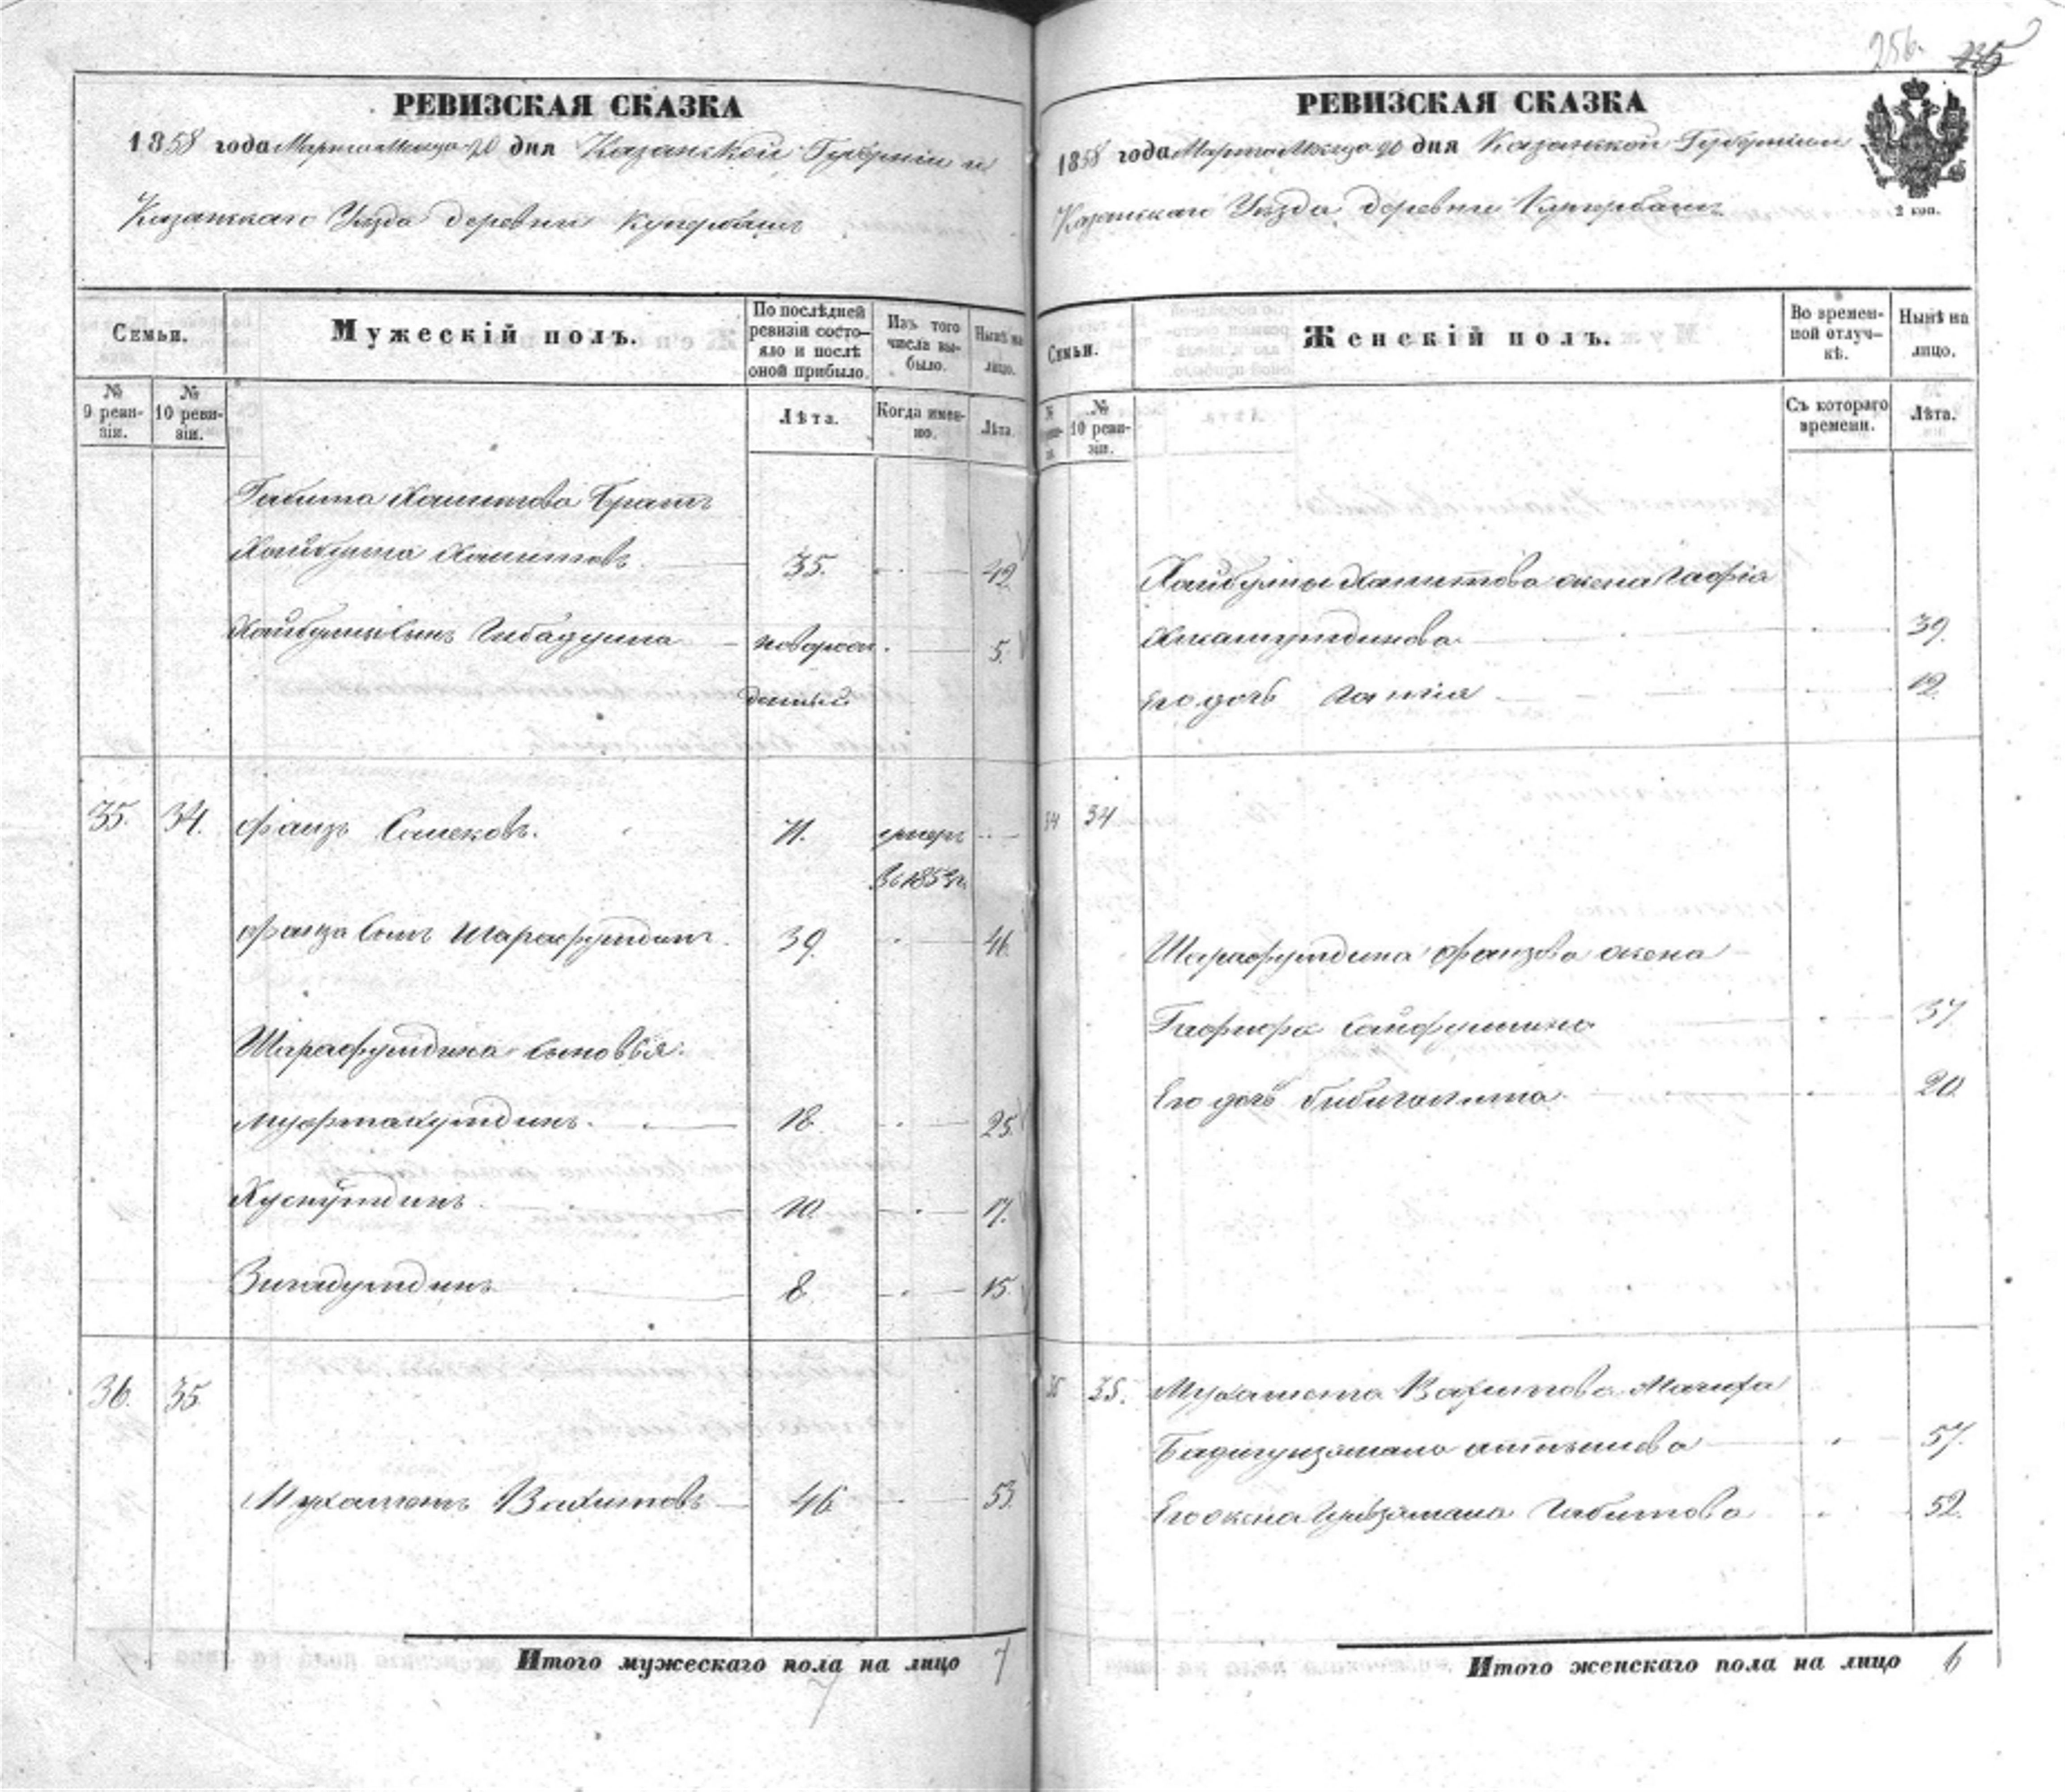 256.
РЕВИЗСКАЯ СКАЗКА
1858 года Марта Месяца 20 дня Казанской Губернии и
Казанскаго Уѣзда деревни Кугербашъ
Семьи.
Мужескій полъ.
По послѣдней ревизіи состо-
яло и послѣ оной прибыло.
Изъ того числа вы-
было.
Нынѣ на лицо.
№ 9 реви-
зіи.
№ 10 реви-
зіи.
Лѣта.
Когда имен-
но.
Лѣта.
Габита Хамитова братъ
Хайбулла Хамитовъ 35. 42
Хайбуллы сынъ Гибадулла новорож 5.
денный
35. 34. Фаизъ 71. умеръ
въ 185
Фаиза сынъ Шарафутдинъ 39. 46
Шарафутдина сыновья:
Муфтахутдинъ 18. 25.
Хуснутдинъ 10. 17.
Зиганутдинъ 8. 15.
36. 35.
Мухаметъ Вахитовъ 46 53.
Итого мужескаго пола на лицо 7
7
РЕВИЗСКАЯ СКАЗКА
1858 года Марта Месяца 20 дня Казанской Губернии и
Казанскаго Уѣзда деревни Кугербашъ
2 коп.
Семьи.
Женскій полъ.
Во времен-
ной отлуч-
кѣ.
Нынѣ на лицо.
№ 10 реви-
зіи.
Съ котораго времени.
Лѣта.
Хайбуллы Хамитова жена
39.
Его дочь 12.
34 34
Шарафутдина Фаизова жена
Сайфуллина 37.
Его дочь 20.
35 35. Мухамета Вахитова Мачиха
57.
Его жена Габитова 52.
Итого женскаго пола на лицо 6